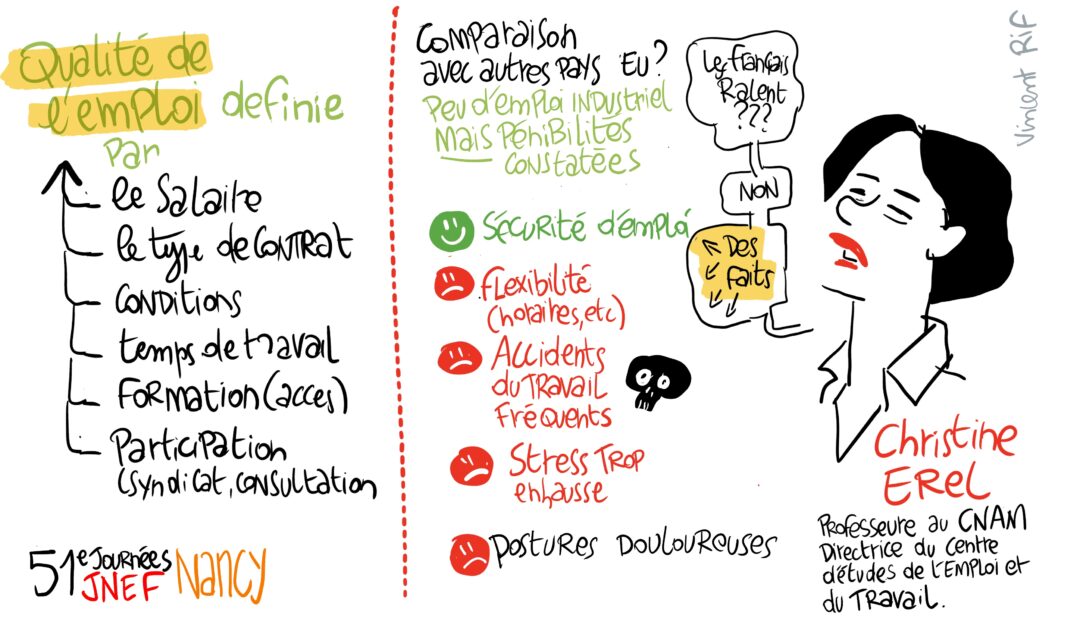 Qualité de
l'emploi definie
par
le Salaire
le type de CONTRAT
CONDITIONS
temps de travail
FORMATION (acces)
Participation
(syndicat, consultation
51e JOURNÉES
JNEF Nancy
COMPARAISON
avec autres pays EU?
Peu d'emploi INDUSTRIEL
Mais PÉNIBILITÉS
CONSTATÉES
SÉCURITÉ d'EMPLOI
FLEXIBILITÉ
(horaires, etc)
ACCIDENTS
du TRAVAIL
FRÉQUENTS
Stress TROP
en hausse
POSTURES DOULOUREUSES
Les français
Ralent
???
NON
Des
faits
Vincent RIF
Christine
EREL
Professeure au CNAM
Directrice du centre
d'études de l'EMPLOI et
du TRAVAIL.